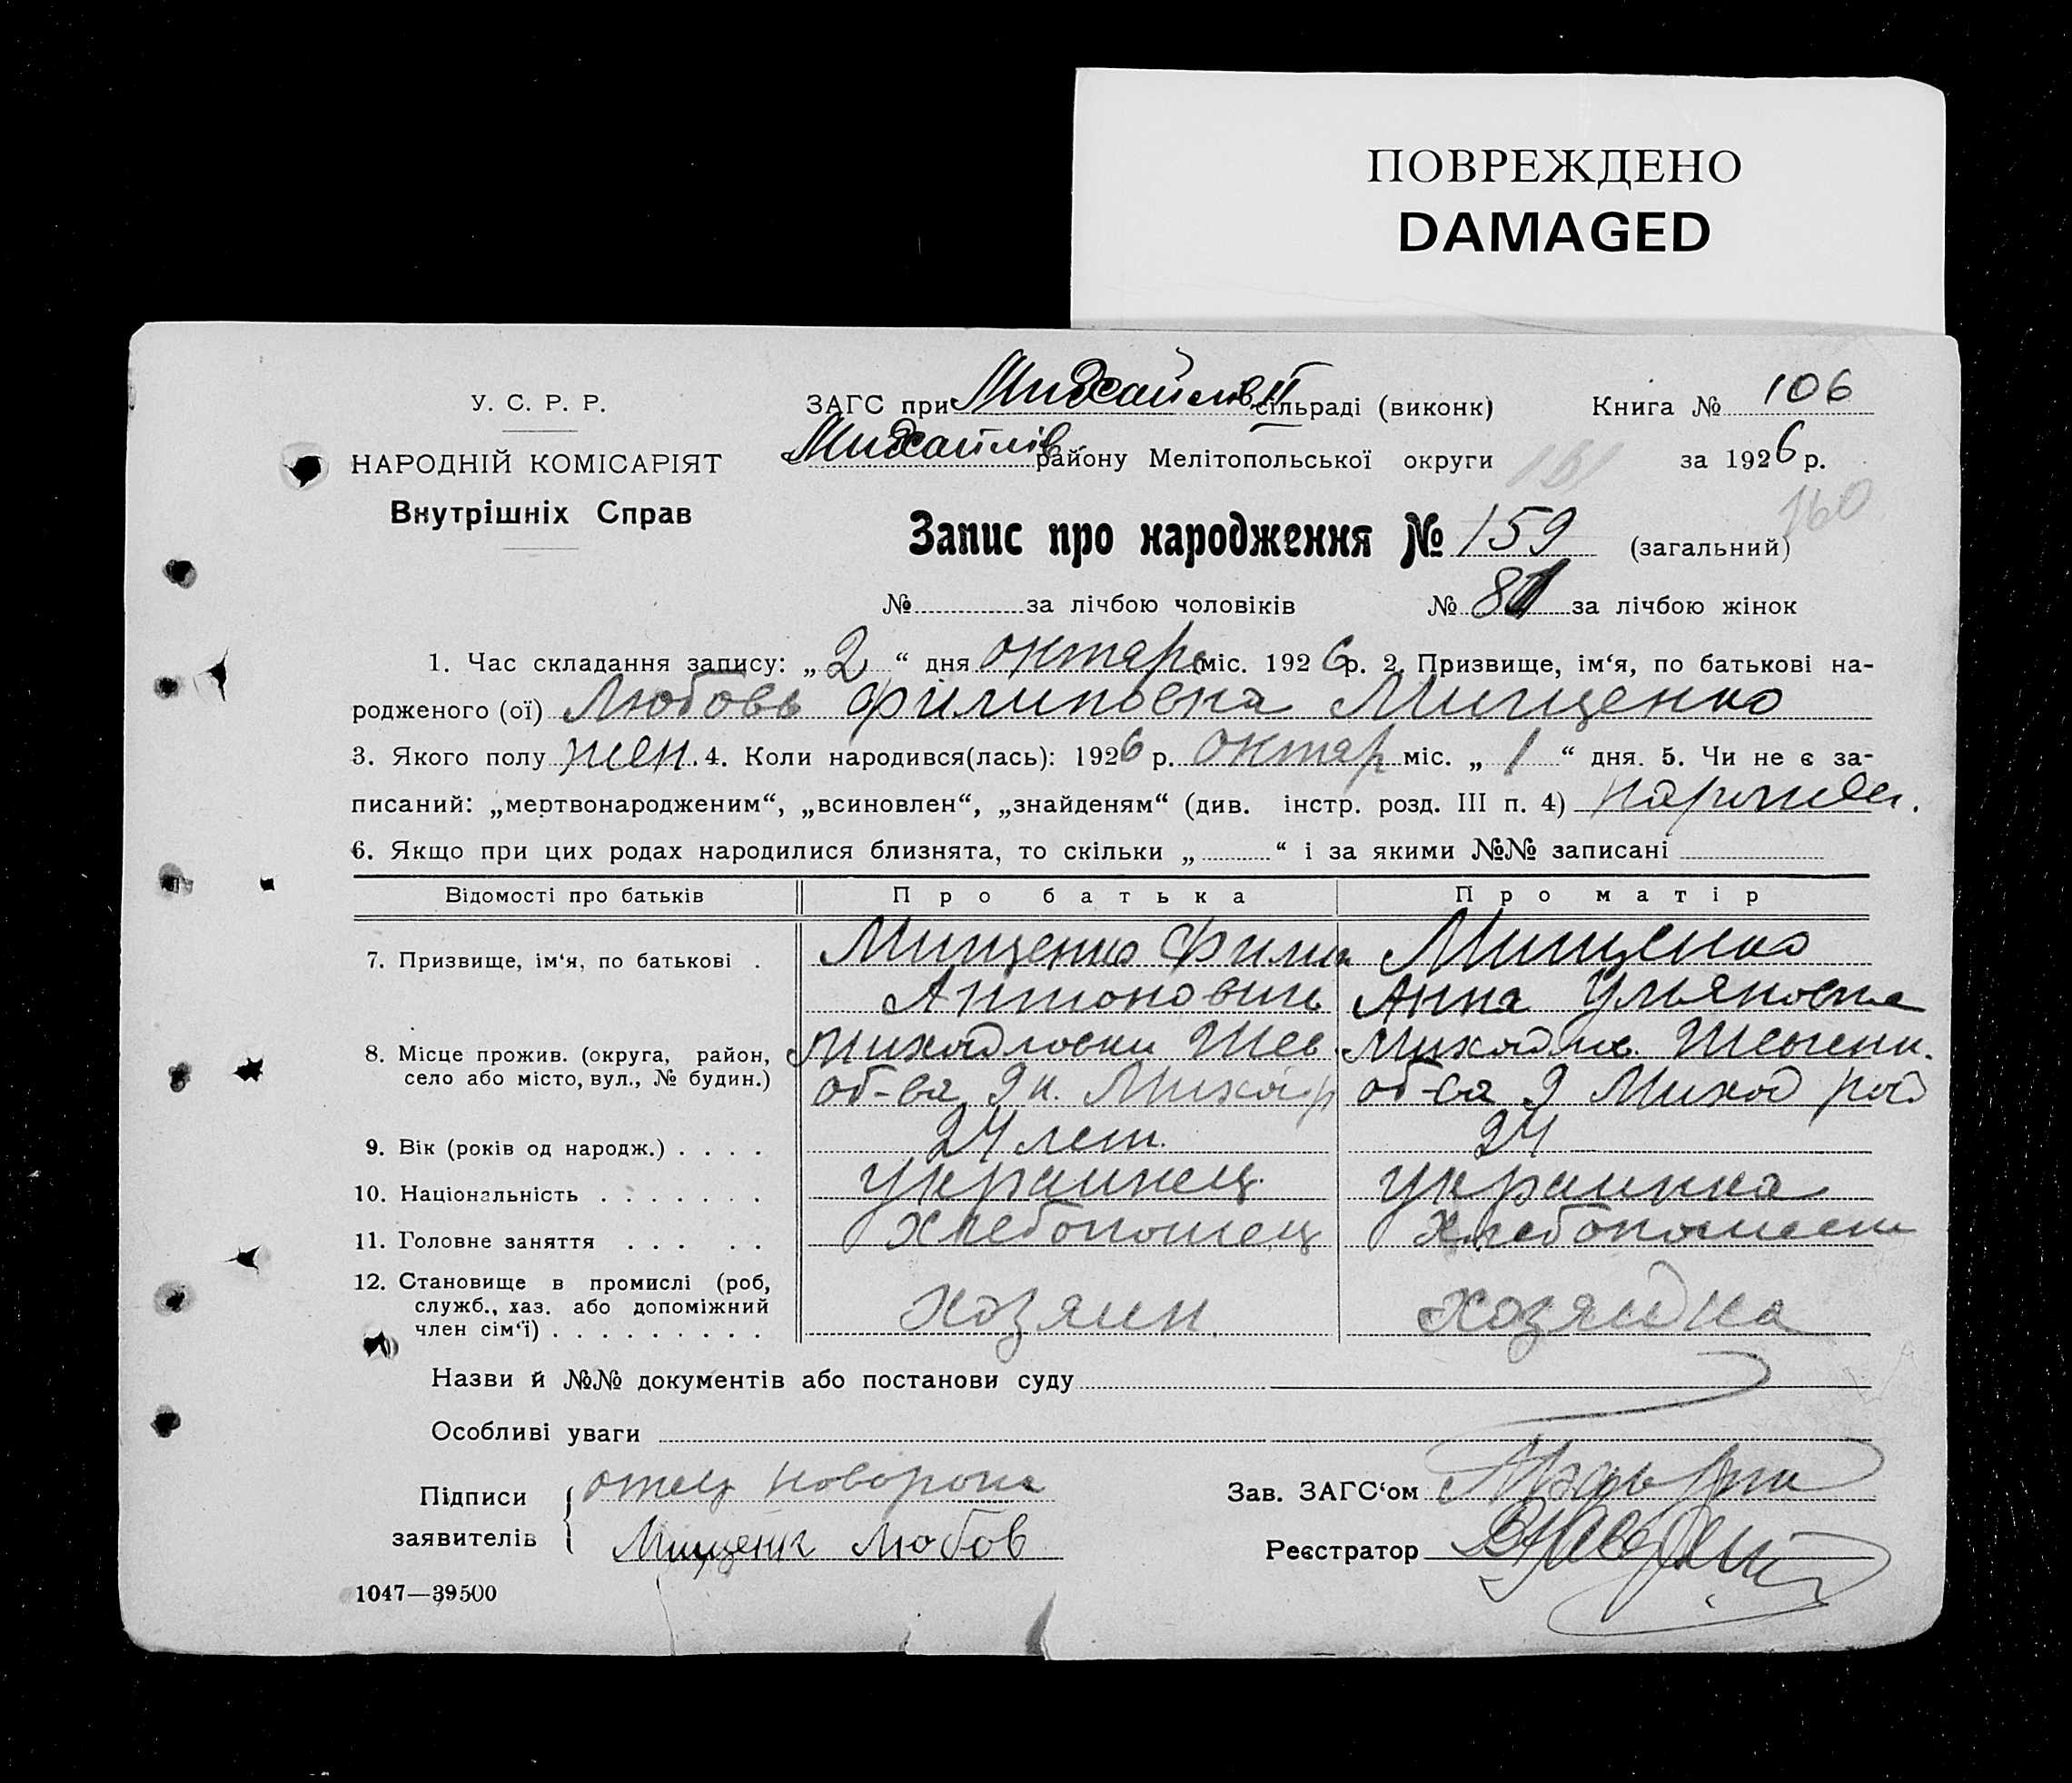 ПОВРЕЖДЕНО
DAMAGED
У. С. Р. Р.
НАРОДНІЙ КОМІСАРІЯТ
Внутрішніх Справ
ЗАГС при Михайлів II сільраді (виконк)
Михайлів району Мелітопольської округи
Книга № 106
за 1926 р.
151
160
Запис про народження № 159 (загальний)
№ за лічбою чоловіків № 81 за лічбою жінок
1. Час складання запису: „2“ дня октяр міс. 1926 р. 2. Призвище, ім‘я, по батькові на-
родженого (ої) Любовь Филиповна Мищенко
3. Якого полу жен. 4. Коли народився(лась): 1926 р. октяр міс. „1“ дня. 5. Чи не є за-
писаний: „мертвонародженим“, „всиновлен“, „знайденям“ (див. інстр. розд. III п. 4)
6. Якщо при цих родах народилися близнята, то скільки „ “ і за якими №№ записані
Відомості про батьків Про батька Про матір
7. Призвище, ім‘я, по батькові . Мищенко Филип Мищенко
Антонович Анна Ульяновна
8. Місце прожив. (округа, район,
село або місто, вул., № будин.)
об-ва 9 об-ва 9
9. Вік (років од народж.) . . . . 24 лет. 24
10. Національність . . . . . . . Украинец. Украинка
11. Головне заняття . . . . . Хлебопошец Хлебопошест
12. Становище в промислі (роб,
служб., хаз. або допоміжний
член сім‘ї) . . . . . . . . . хозяин. хозяйка
Назви й №№ документів або постанови суду
Особливі уваги
Підписи
заявителів
отец
Мищенк Любов
Зав. ЗАГС‘ом
Реєстратор
1047—39500